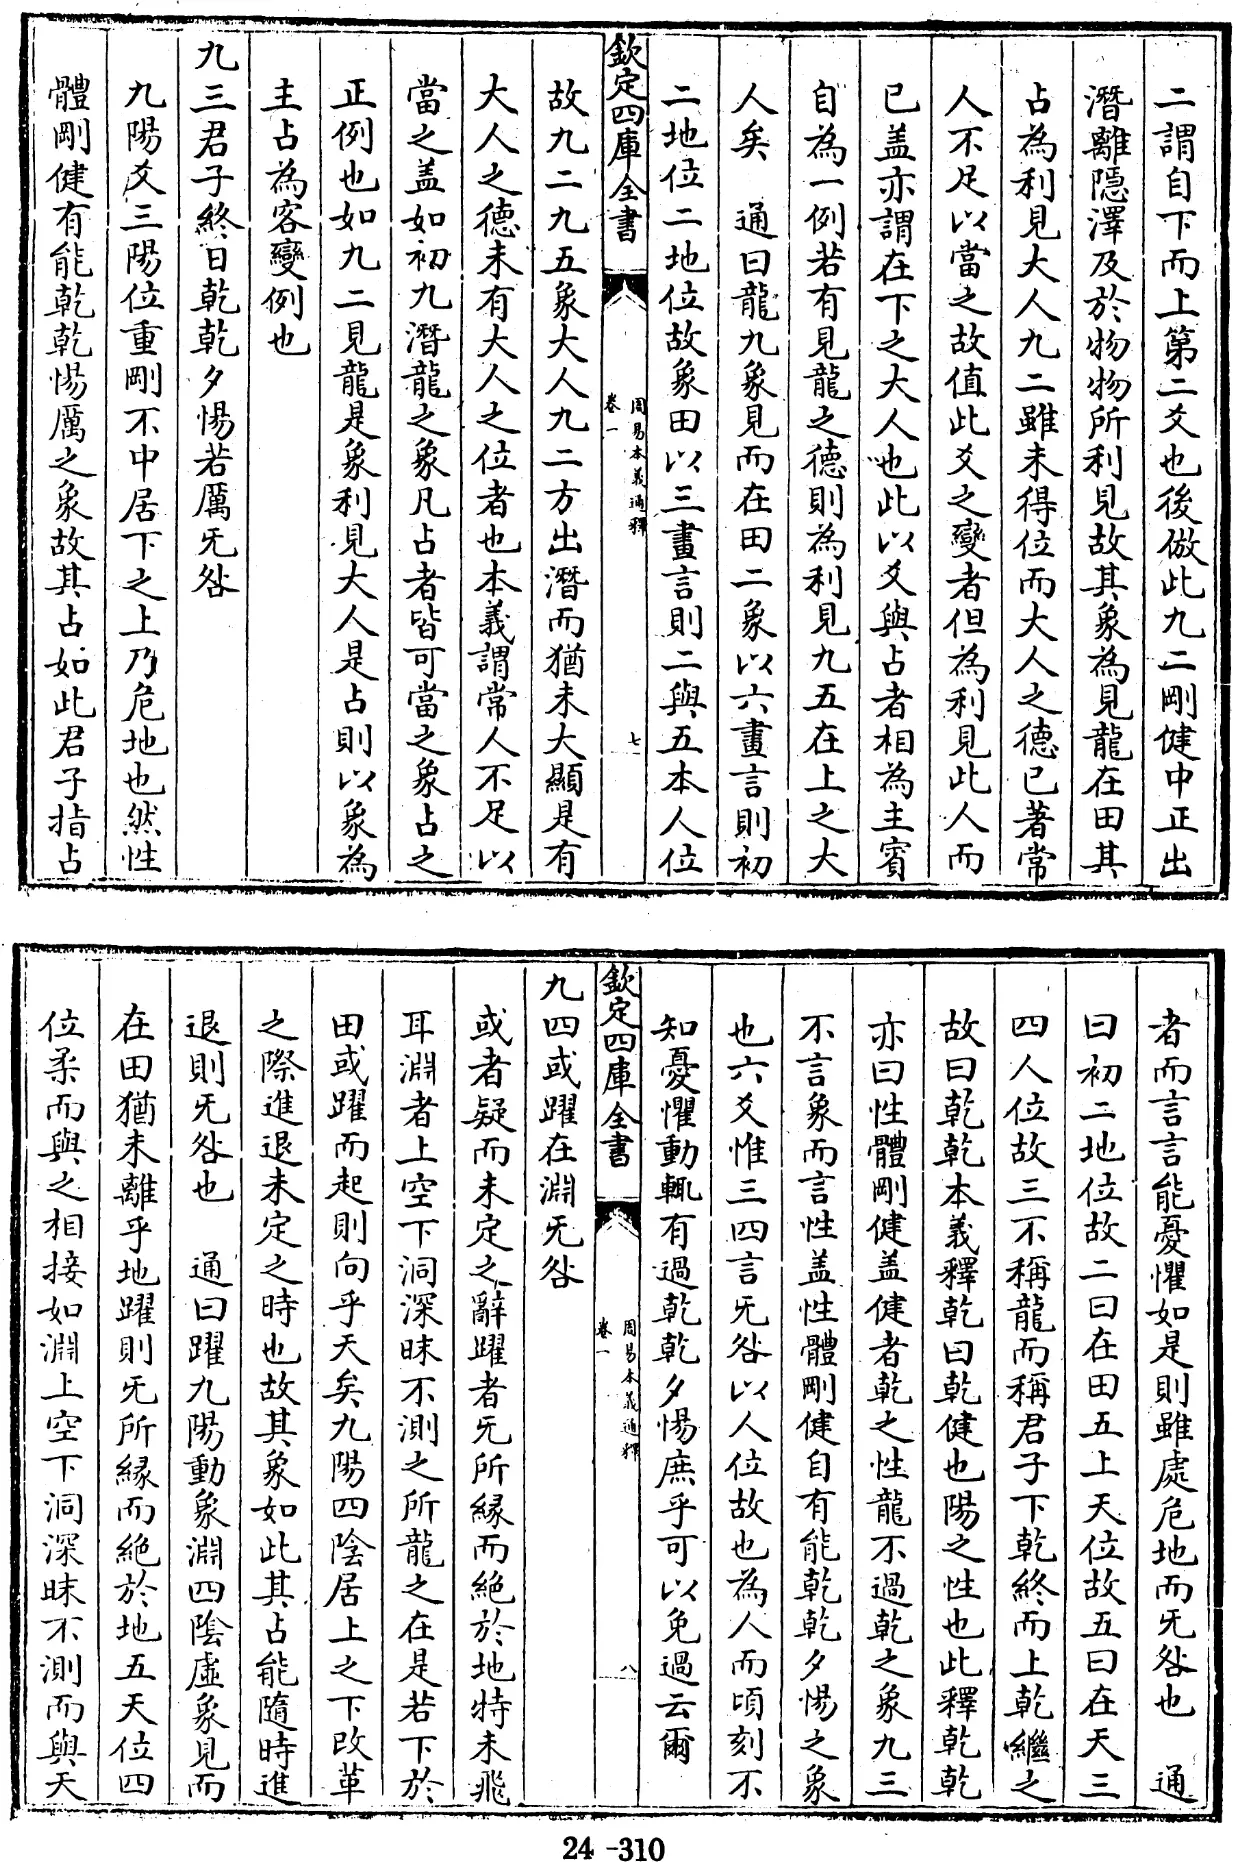 二謂自下而上第二爻也後倣此九二剛健中正出
潛離隱澤及於物物所利見故其象為見龍在田其
占為利見大人九二雖未得位而大人之德已著常
人不足以當之故值此爻之變者但為利見此人而
已盖亦謂在下之大人也此以爻與占者相為主賓
自為一例若有見龍之德則為利見九五在上之大
人矣　通曰龍九象見而在田二象以六畫言則初
二地位二地位故象田以三畫言則二與五本人位
欽定四庫全書
周易本義通釋
卷一
七
故九二九五象大人九二方出潛而猶未大顯是有
大人之德未有大人之位者也本義謂常人不足以
當之盖如初九潛龍之象凡占者皆可當之象占之
正例也如九二見龍是象利見大人是占則以象為
主占為客變例也
九三君子終日乾乾夕惕若厲无咎
九陽爻三陽位重剛不中居下之上乃危地也然性
體剛健有能乾乾惕厲之象故其占如此君子指占
者而言言能憂懼如是則雖處危地而无咎也　通
曰初二地位故二曰在田五上天位故五曰在天三
四人位故三不稱龍而稱君子下乾終而上乾繼之
故曰乾乾本義釋乾曰乾健也陽之性也此釋乾乾
亦曰性體剛健盖健者乾之性龍不過乾之象九三
不言象而言性盖性體剛健自有能乾乾夕惕之象
也六爻惟三四言无咎以人位故也為人而頃刻不
知憂懼動輒有過乾乾夕惕庶乎可以免過云爾
欽定四庫全書
周易本義通釋
卷一
八
九四或躍在淵无咎
或者疑而未定之辭躍者无所緣而絶於地特未飛
耳淵者上空下洞深昧不測之所龍之在是若下於
田或躍而起則向乎天矣九陽四陰居上之下改革
之際進退未定之時也故其象如此其占能隨時進
退則无咎也　通曰躍九陽動象淵四陰虛象見而
在田猶未離乎地躍則无所緣而絶於地五天位四
位柔而與之相接如淵上空下洞深昧不測而與天
24-310